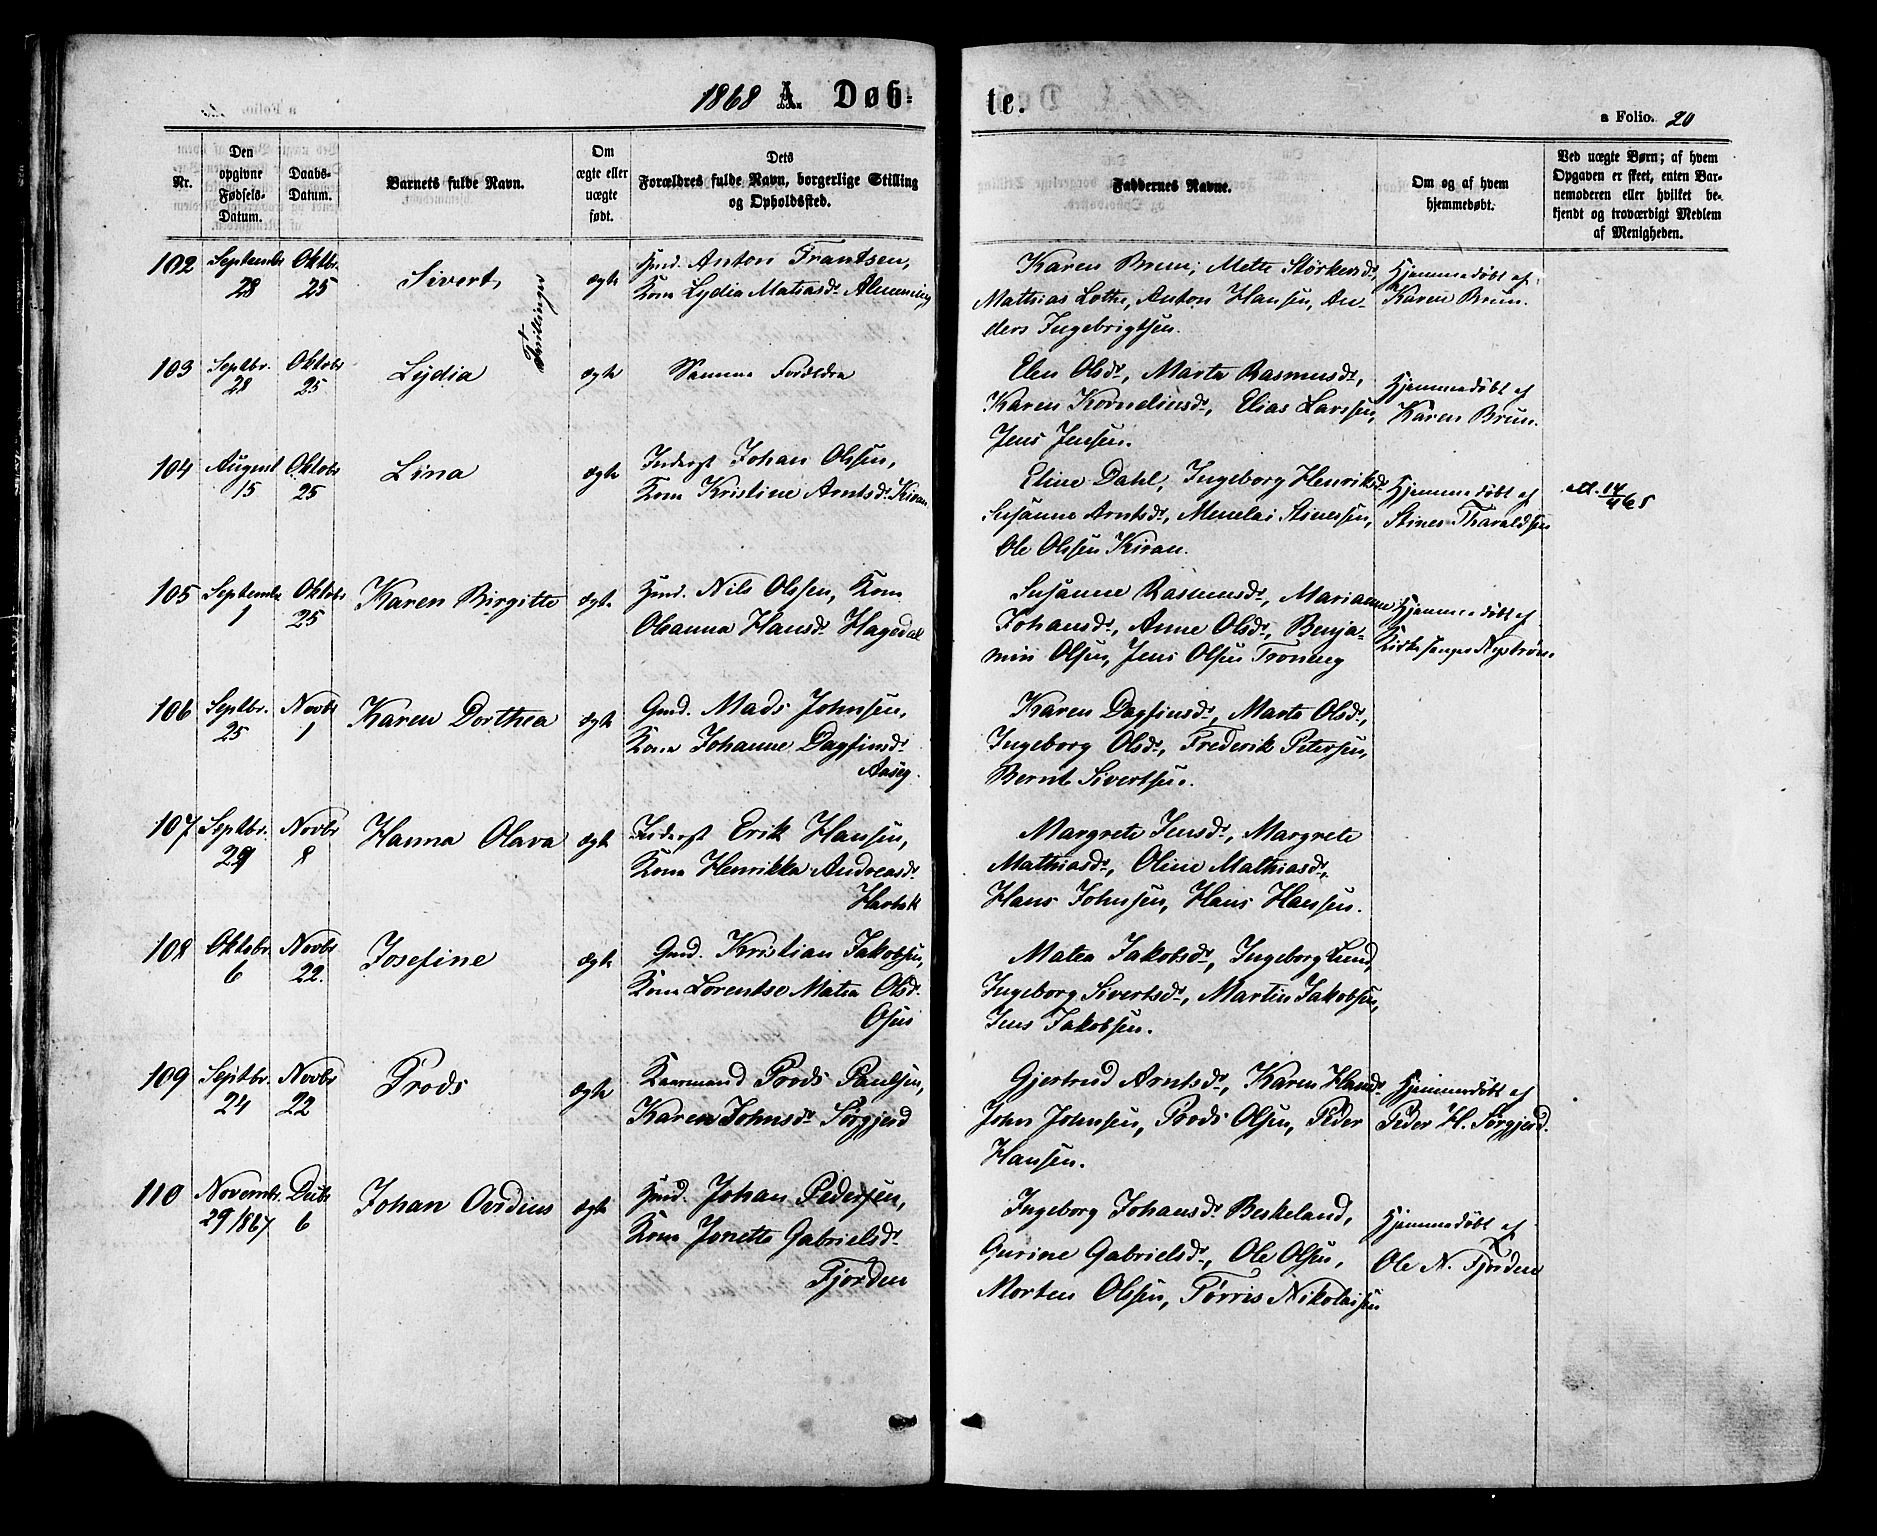 1868 A. Døb-
te.
a Folio. 20
Nr.
Den opgivne Fødsels-Datum.
Daabs-Datum.
Barnets fulde Navn.
Om ægte eller uægte født.
Dets Forældres fulde Navn, borgerlige Stilling og Opholdssted.
Faddernes Navne.
Om og af hvem hjemmedøbt.
Ved uægte Børn; af hvem Opgaven er skeet, enten Barnemoderen eller hvilket bekjendt og troværdigt Medlem af Menigheden.
102 Septembr 28 Oktbr. 25 Sivert, Tvillinger ægte
Hmd. Anton Frantsen,
Kone Lydia Matiasd. Almenning
Karen Brun, Mette Størkersd.,
Mathias Lothe, Anton Hansen, An-
ders Ingebrigtsen.
Hjemmedøbt af
Karen Brun.
103 Septbr. 28 Oktobr 25 Lydia ægte
Samme Forældre
Elen Olsd., Marta Rasmusd.,
Karen Korneliusd., Elias Larssen,
Jens Jensen.
Hjemmedøbt af
Karen Brun.
104 August 15 Oktobr 25 Lina ægte
Inderst Johan Olssen,
Kone Kristine Arntsd. Kiran
Eline Dahl, Ingeborg Henriksd.
Susanne Arntsd., Menelai Stinessen,
Ole Olssen Kiran.
Hjemmedøbt af
Stines Tharaldsen
105 September 1 Oktobr 25 Karen Birgitte ægt.
Hmd. Nils Olssen, Kone
Oleanna Hansd. Hagedal
Susanne Rasmusd., Marianne
Johansd., Anne Olsd., Benja-
min Olsen, Jens Olsen Troning
Hjemmedøbt af
Kirkesanger Nystrøm.
106 Septbr. 25 Novbr 1 Karen Dorthea ægte
Gmd. Mads Johnsen,
Kone Johanne Dagfinsd.
Aaseg.
Karen Dagfinsd., Marta Olsd.,
Ingeborg Olsd., Frederik Petersen,
Bernt Sivertsen.
107 Septbr. 29 Novbr 8 Hanna Olava ægte
Inderst Erik Hansen,
Kone Henrikka Andreasd.
Harbak
Margrete Jensd., Margrete
Mathiasd., Oline Mathiasd.,
Hans Johnsen, Hans Hansen.
108 Oktobr. 6 Novbr 22. Josefine ægte
Gmd. Kristian Jakobsen,
Kone Lorentse Matea Olsd.
Osen
Matea Jakobsd., Ingeborg Lund,
Ingeborg Sivertsd., Martin Jakobsen,
Jens Jakobsen.
109 Septbr. 24 Novbr 22 Prods ægte
Kaarmand Prods Paulsen,
Karen Johnsd. Sørgjerd
Gjertrud Arntsd., Karen Hansd.
John Johnsen, Prods Olsen, Peder
Hansen.
Hjemmedøbt af
Peder H. Sørgjerd.
110 Novembr. 29 1867 Debr 6 Johan Ovidius ægte
Hmd. Johan Pedersen,
Kone Jonette Gabrielsd.
Fjorden
Ingeborg Johansd. Beskeland,
Gurine Gabrielsd., Ole Olsen,
Morten Olssen, Tørris Nikolaisen
Hjemmedøbt af
Ole N. Fjorden